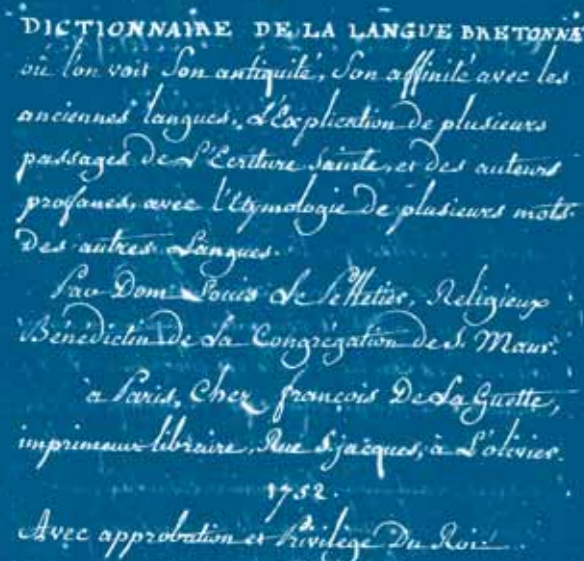 DICTIONNAIRE DE LA LANGUE BRETONNE
où l'on voit Son antiquité, Son affinité avec les
anciennes langues, L'Explication de plusieurs
passages de L'Ecriture sainte, et des auteurs
profanes, avec l'Etymologie de plusieurs mots
Des autres Langues.
Par Dom Louis Le Pelletier, Religieux
Bénédictin de La Congrégation de S. Maur.
à Paris, Chez françois De La Guette,
imprimeur libraire, Rue S. jacques, à L'olivier.
1752.
Avec approbation et Privilège Du Roi.